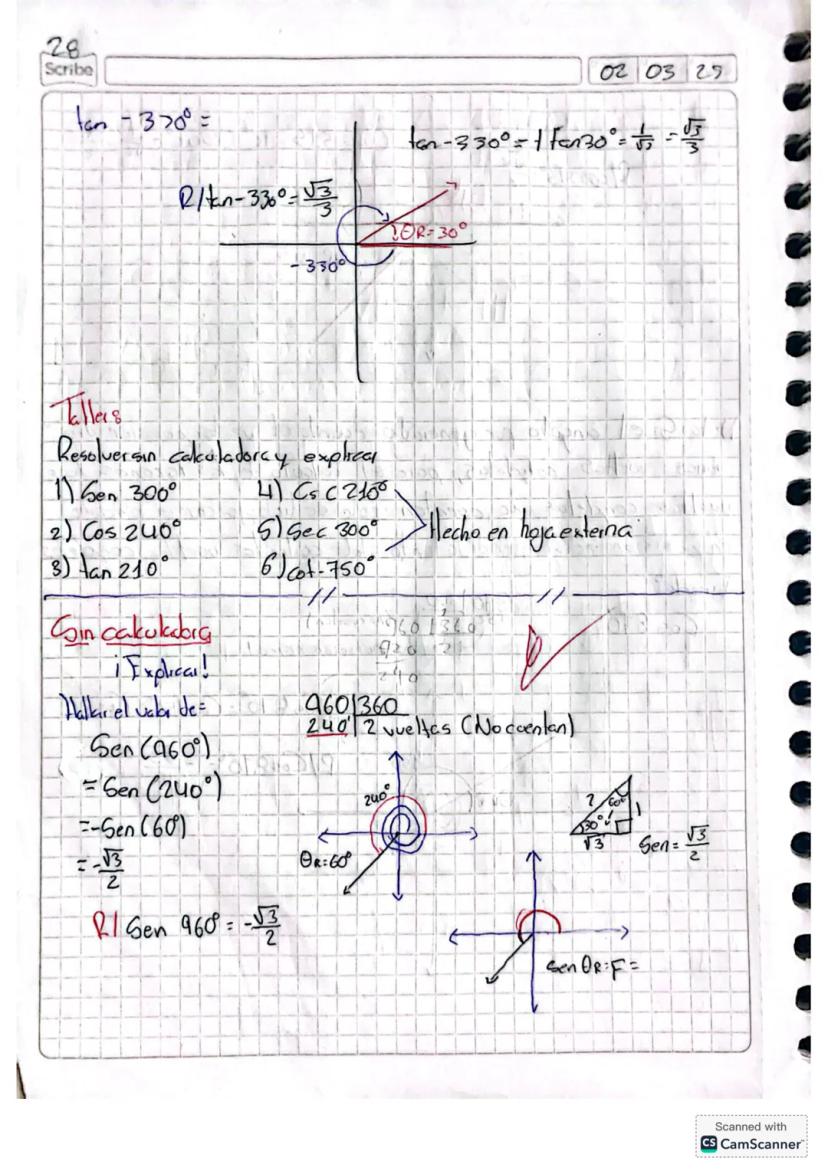 28
Scribe
02 03 25
tan - 330° =
tan - 330° = + tan 30° = 1/√3 = √3/3
R/ tan - 330° = √3/3
θR = 30°
- 330°
Taller 8
Resolver sin calculadora y explicar
1) Sen 300° 4) Csc 210°
2) Cos 240° 5) Sec 300° Hecho en hoja externa
3) tan 210° 6) cot - 750°
// //
Sin calculadora
¡Explicar!
Hallar el valor de=
960 | 360
240° | 2 vueltas (No cuentan)
Sen (960°)
= Sen (240°)
= -Sen (60°)
= -√3/2
R/ Sen 960° = -√3/2
240°
θR = 60°
2 60° 1
30°
√3
Sen = √3/2
Sen θR = F =
Scanned with
CS CamScanner